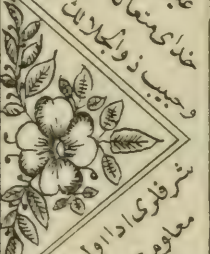 خدای متعا
و حبیب ذوالجلالك
شرفلری ادا او
معلوم